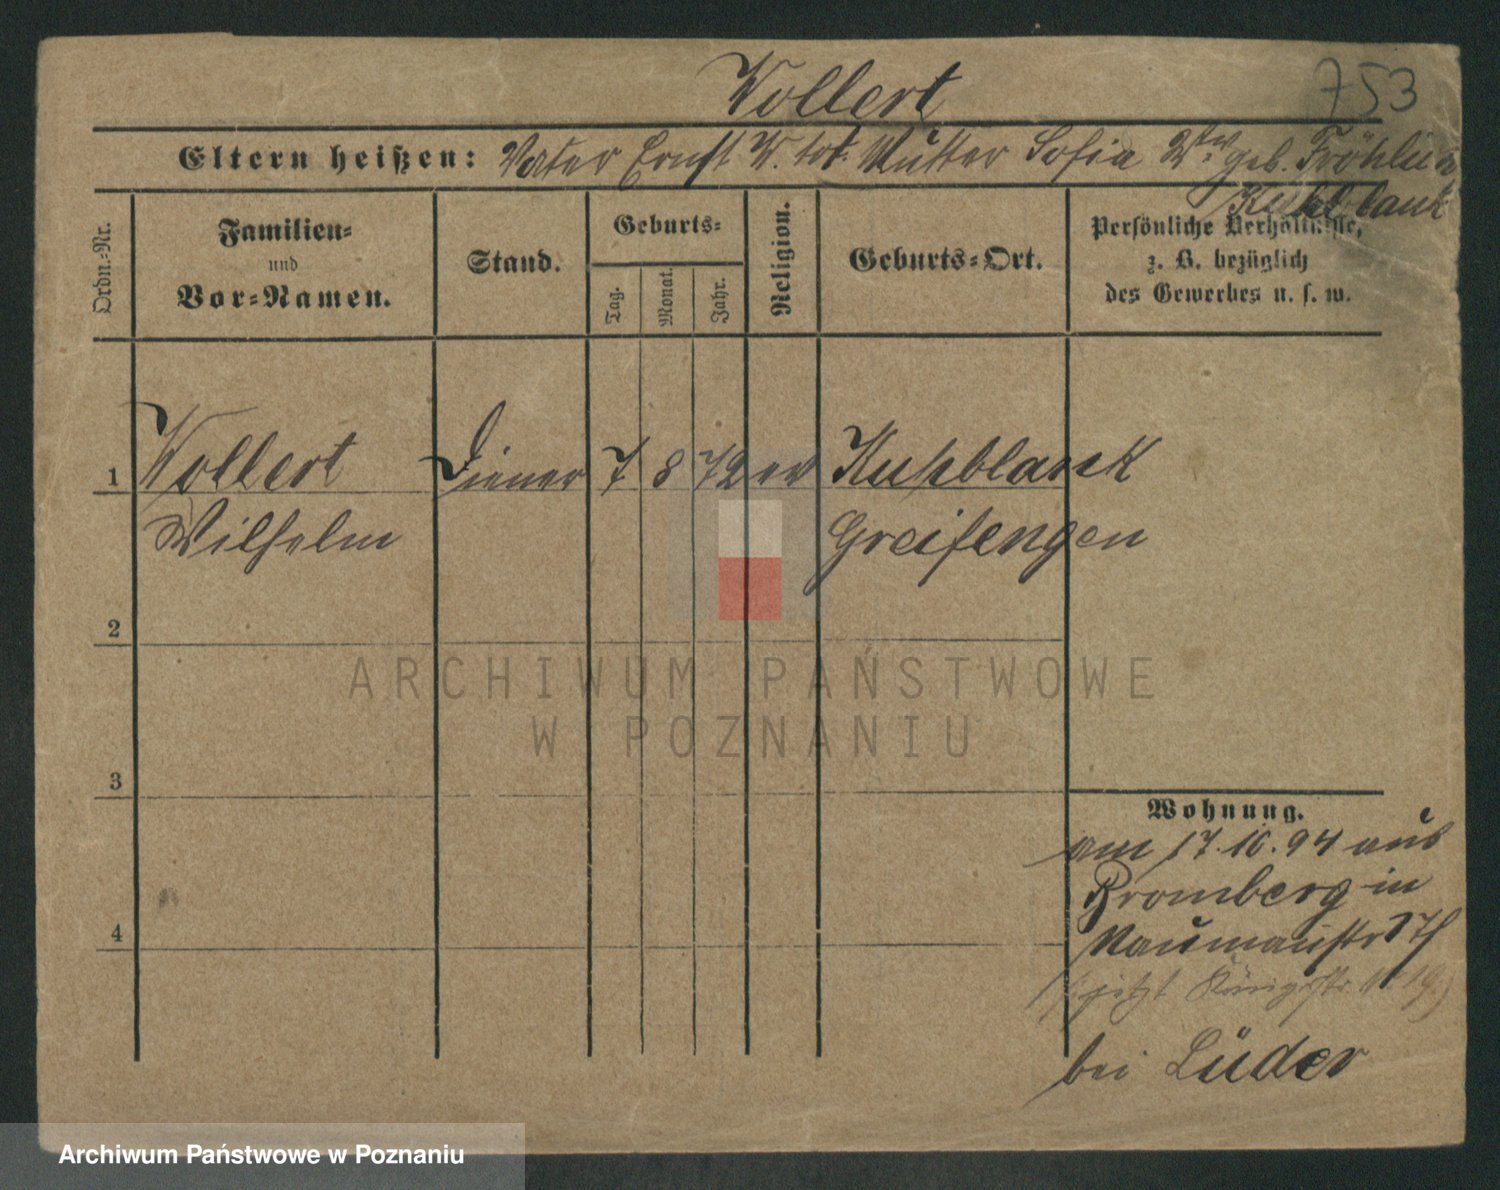 Wollert
753
Eltern heißen: Vater Ernst W. tot. Mutter Sofia geb. Fröhlich
Kuhblank
Ordn.-Nr.
Familien-
und
Vor-Namen.
Stand.
Geburts-
Tag.
Monat.
Jahr.
Religion.
Geburts-Ort.
Persönliche Verhältnisse,
z. B. bezüglich
des Gewerbes u. s. w.
1
Wollert Diener 7 8 72 ev Kuhblank
Wilhelm Greifengen
2
3
4
Wohnung.
am 17.10.94 aus
Bromberg in
Naumannstr
(jetzt Königstr. 19.)
bei Lüder
ARCHIWUM PAŃSTWOWE
W POZNANIU
Archiwum Państwowe w Poznaniu